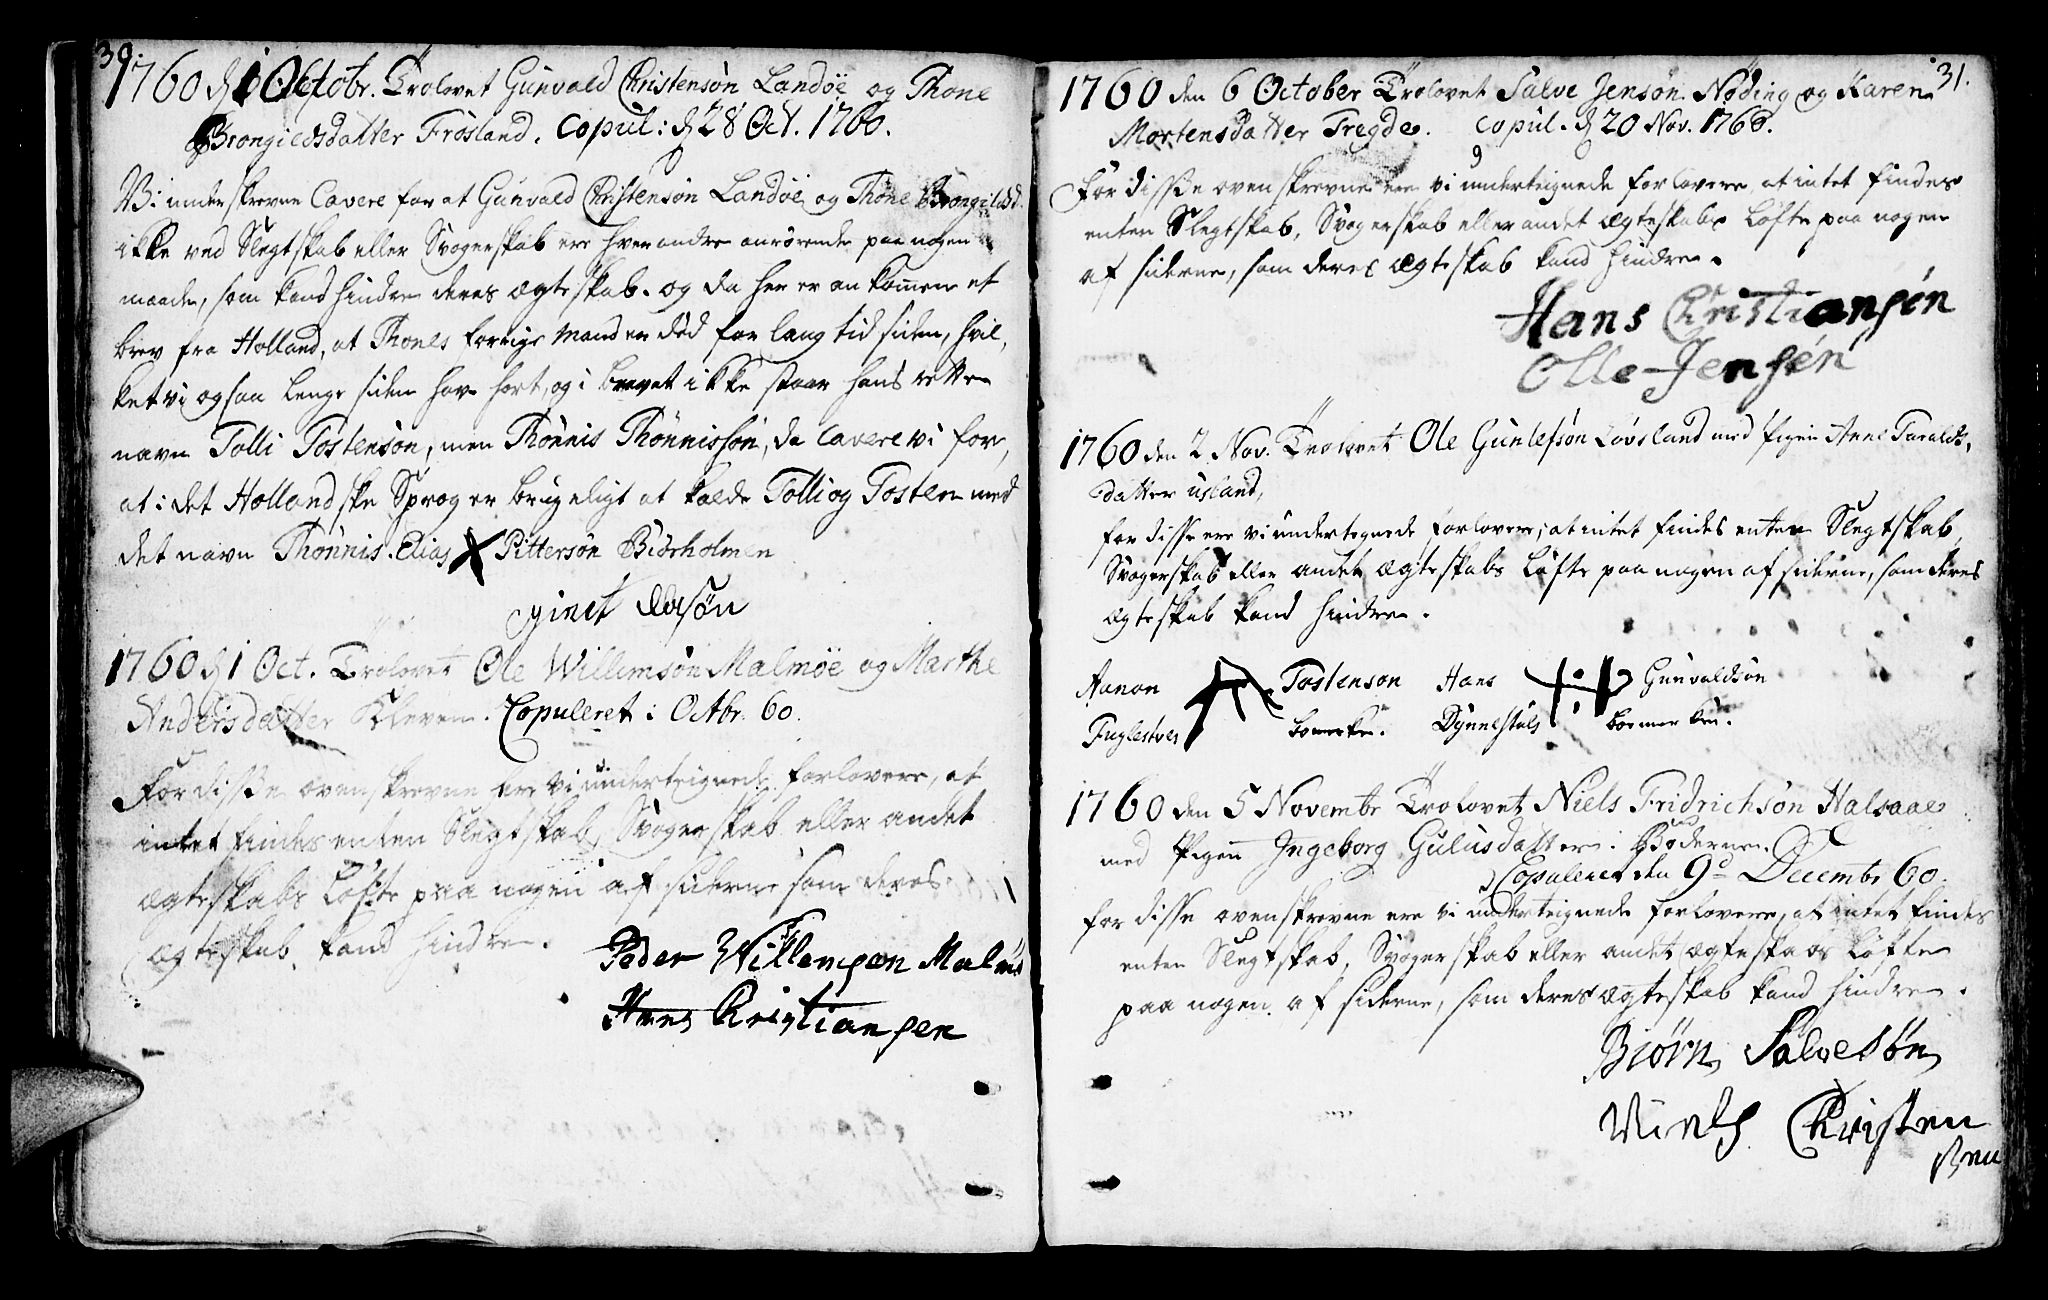 30.
1760 d. 1 Octobr. Trolovet Gunvald Christensøn Landøe og Thone
Brongieldsdatter Frøsland. Copul: d. 28 Oct. 1760.
Vi underskrevne Cavere for at Gunvald Christensøn Landøe og Thone Brongieldsd.
ikke ved Slegtskab eller Svogerskab ere hverandre anrørende paa nogen
maade, som kand hindre deres ægteskab. og da her er ankommen et
brev fra Holland, at Thones forrige Mand er død for lang tid siden, hvil,
ket vi ogsaa lenge siden have hørt, og i brevet ikke staar hans rette
navn Tolli Tostensøn, men Thønnis Thønnissøn, da Cavere vi for,
at i det Hollandske Sprog er brugeligt at kalde Tolli og Tosten med
det navn Thønnis. Elias X Pittersøn Biørholmen
1760 d. 1 Oct. Trolovet Ole Willemsøn Malmøe og Marthe
Andersdatter Kleven. Copuleret i Octbr. 60.
For disse ovenskrevne ere vi underteignede forlovere, at
intet findes enten Slegtskab, Svogerskab eller andet
ægteskabs Løfte paa nogen af siderne som deres
ægteskab kand hindre.
Peder Willemsøn Malmø
Hans Christiansen
31.
1760 den 6 October Trolovet Salve Jensøn Nøding og Karen
Mortensdatter Tregde. Copul. d. 20 Nov. 1760.
For disse ovenskrevne ere vi underteignede forlovere, at intet findes
enten Slegtskab, Svogerskab eller andet ægteskabs Løfte paa nogen
af siderne, som deres ægteskab kand hindre.
Hans Christiansøn
Olle Jensøn
1760 den 2 Nov. Trolovet Ole Gunlefsøn Løvsland med Pigen Anne Taralds,
datter Usland,
for disse ere vi undertegnede forlovere, at intet findes enten Slegtskab,
Svogerskab eller andet ægteskabs Løfte paa nogen af siderne, som deres
ægteskab kand hindre.
Aanon Tostensøn Hans Gunvaldsøn
Fuglestvet bomerke. Dynnestøls boemerke.
1760 den 5 Novembr Trolovet Niels Fridrichsøn Halsaae
med Pigen Ingeborg Gulusdatter i Boderne.
Copuleret den 9de Decembr 60.
for disse ovenskrevne ere vi underteignede forlovere, at intet findes
enten Slegtskab, Svogerskab eller andet ægteskabs Løfte
paa nogen af siderne, som deres ægteskab kand hindre.
Biørn Salvesøn
Niels Christen
sen